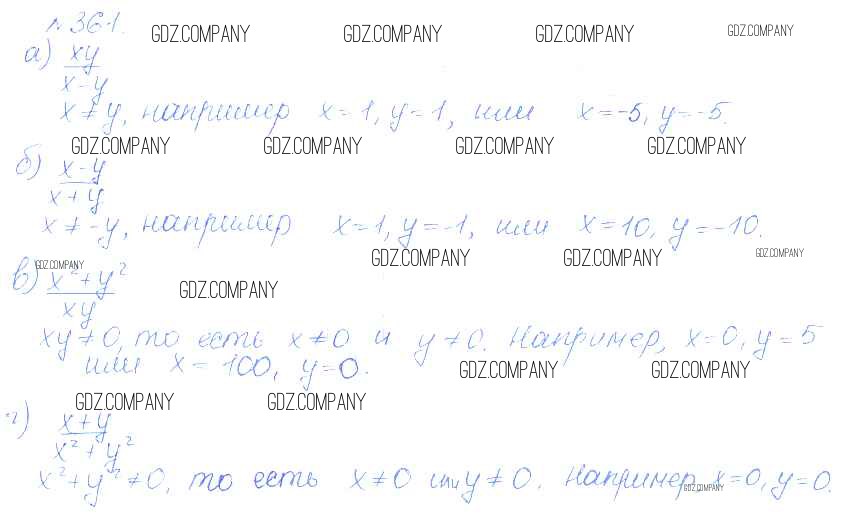 № 361.
GDZ.COMPANY GDZ.COMPANY GDZ.COMPANY GDZ.COMPANY
а) xy
x-y
x ≠ y, например x=1, y=1, или x=-5, y=-5.
GDZ.COMPANY GDZ.COMPANY GDZ.COMPANY GDZ.COMPANY
б) x-y
x+y
x ≠ -y, например x=1, y=-1, или x=10, y=-10.
GDZ.COMPANY GDZ.COMPANY GDZ.COMPANY GDZ.COMPANY
в) x²+y²
GDZ.COMPANY
xy
xy ≠ 0, то есть x ≠ 0 и y ≠ 0. Например, x=0, y=5
или x=100, y=0.
GDZ.COMPANY GDZ.COMPANY
GDZ.COMPANY GDZ.COMPANY
г) x+y
x²+y²
x²+y² ≠ 0, то есть x ≠ 0 или y ≠ 0. Например x=0, y=0.
GDZ.COMPANY